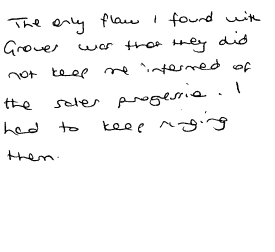 The only flaw I found with
Groves was that they did
not keep me informed of
the sales progession. I
had to keep ringing
them.